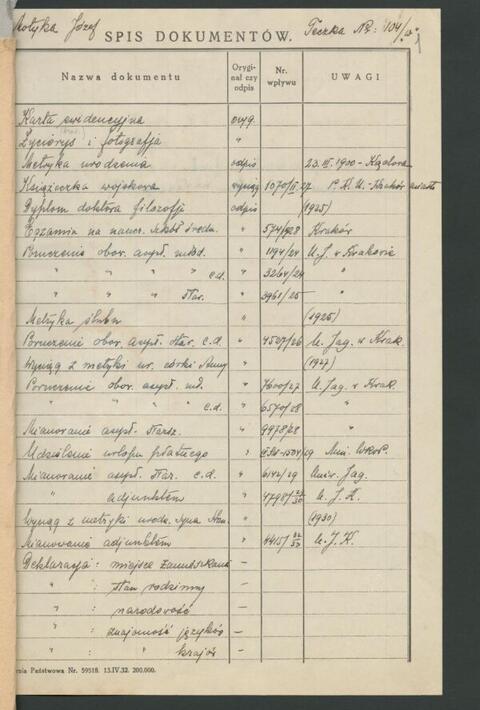 Motyka Józef SPIS DOKUMENTÓW. Teczka Nr: 104/
Nazwa dokumentu Orygi-nał czy odpis Nr. wpływu UWAGI
Karta ewidencyjna oryg.
Życiorys i fotografja "
Metryka urodzenia odpis 23.III.1900 - 
Książeczka wojskowa wyciąg 1070/II.27 P.K.U. - Kraków miasto
Dyplom doktora filozofji odpis (1925)
Egzamin na naucz. szkół średn. " Kraków
Poruczenie obow. asyst. młd. " 1194/24 U.J. w Krakowie
" " " " c.d. " 3264/24 "
" " " " star. " 3961/25 "
Metryka ślubu " (1925)
Poruczenie obow. asyst. star. c.d. " 4507/26 U. Jag. w Krak.
Wyciąg z metryki ur. córki Anny " (1927)
Poruczenie obow. asyst. mł. " 7600/27 U. Jag. w Krak.
" " " " c.d. " 6570/28 "
Mianowanie asyst. starsz. " 9478/28 "
Udzielenie urlopu płatnego "
Mianowanie asyst. star. c.d. " 6142/29 Uniw. Jag.
" adjunktem " U. J. K.
Wyciąg z metryki urodz. syna " (1930)
Mianowanie adjunktem " U. J. K.
Deklaracja: miejsca zamieszkania –
" : stan rodzinny –
" : narodowość –
" : znajomość języków –
" : " krajów –
rnia Państwowa Nr. 59518. 13.IV.32. 200.000.